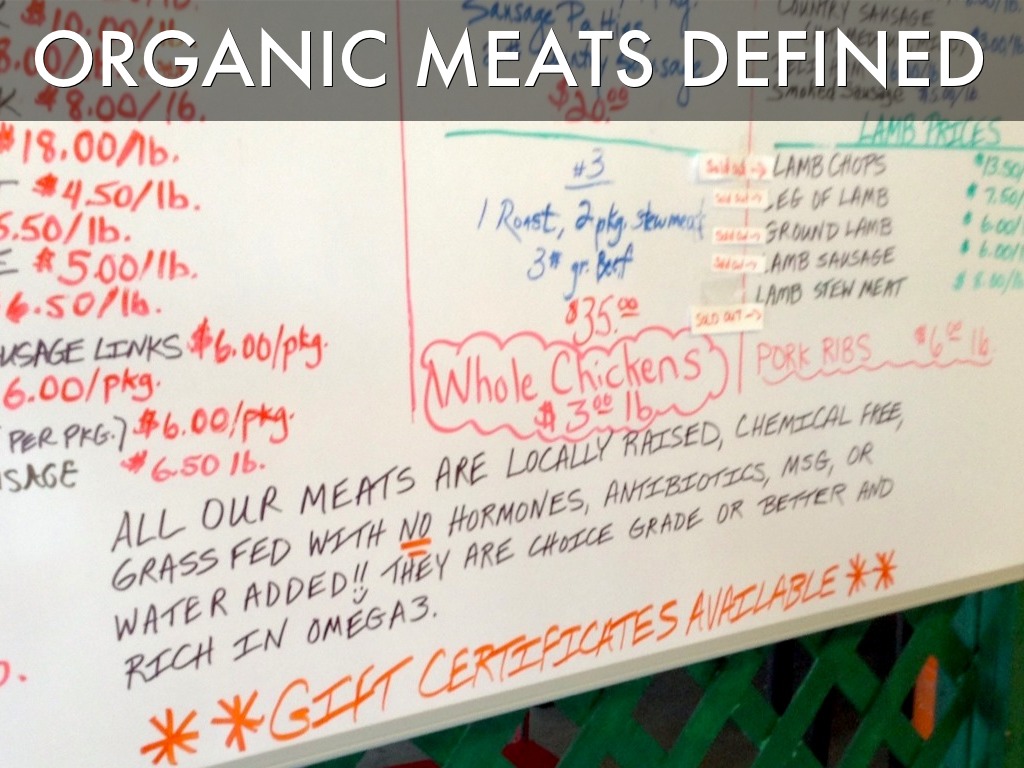 ORGANIC MEATS DEFINED
$10.00/lb.
8.00/lb.
$8.00/lb.
$18.00/lb.
$4.50/lb.
5.50/lb.
$5.00/lb.
6.50/lb.
USAGE LINKS $6.00/pkg.
6.00/pkg.
PER PKG.) $6.00/pkg.
SAGE $6.50 lb.
Sausage Patties,
$20.00
#3
1 Roast, 2 pkg. stew meat
3# gr. Beef
$35.00
Whole Chickens
$3.00 lb.
COUNTRY SAUSAGE
Smoked Sausage $5.00/lb
LAMB PRICES
Sold Out → LAMB CHOPS $13.50/
Sold Out → LEG OF LAMB $7.50/
Sold Out → GROUND LAMB $6.00/
Sold Out → LAMB SAUSAGE $6.00/l
SOLD OUT → LAMB STEW MEAT $8.00/lb
PORK RIBS $6.00 lb.
ALL OUR MEATS ARE LOCALLY RAISED, CHEMICAL FREE,
GRASS FED WITH NO HORMONES, ANTIBIOTICS, MSG, OR
WATER ADDED!! THEY ARE CHOICE GRADE OR BETTER AND
RICH IN OMEGA3.
**GIFT CERTIFICATES AVAILABLE**